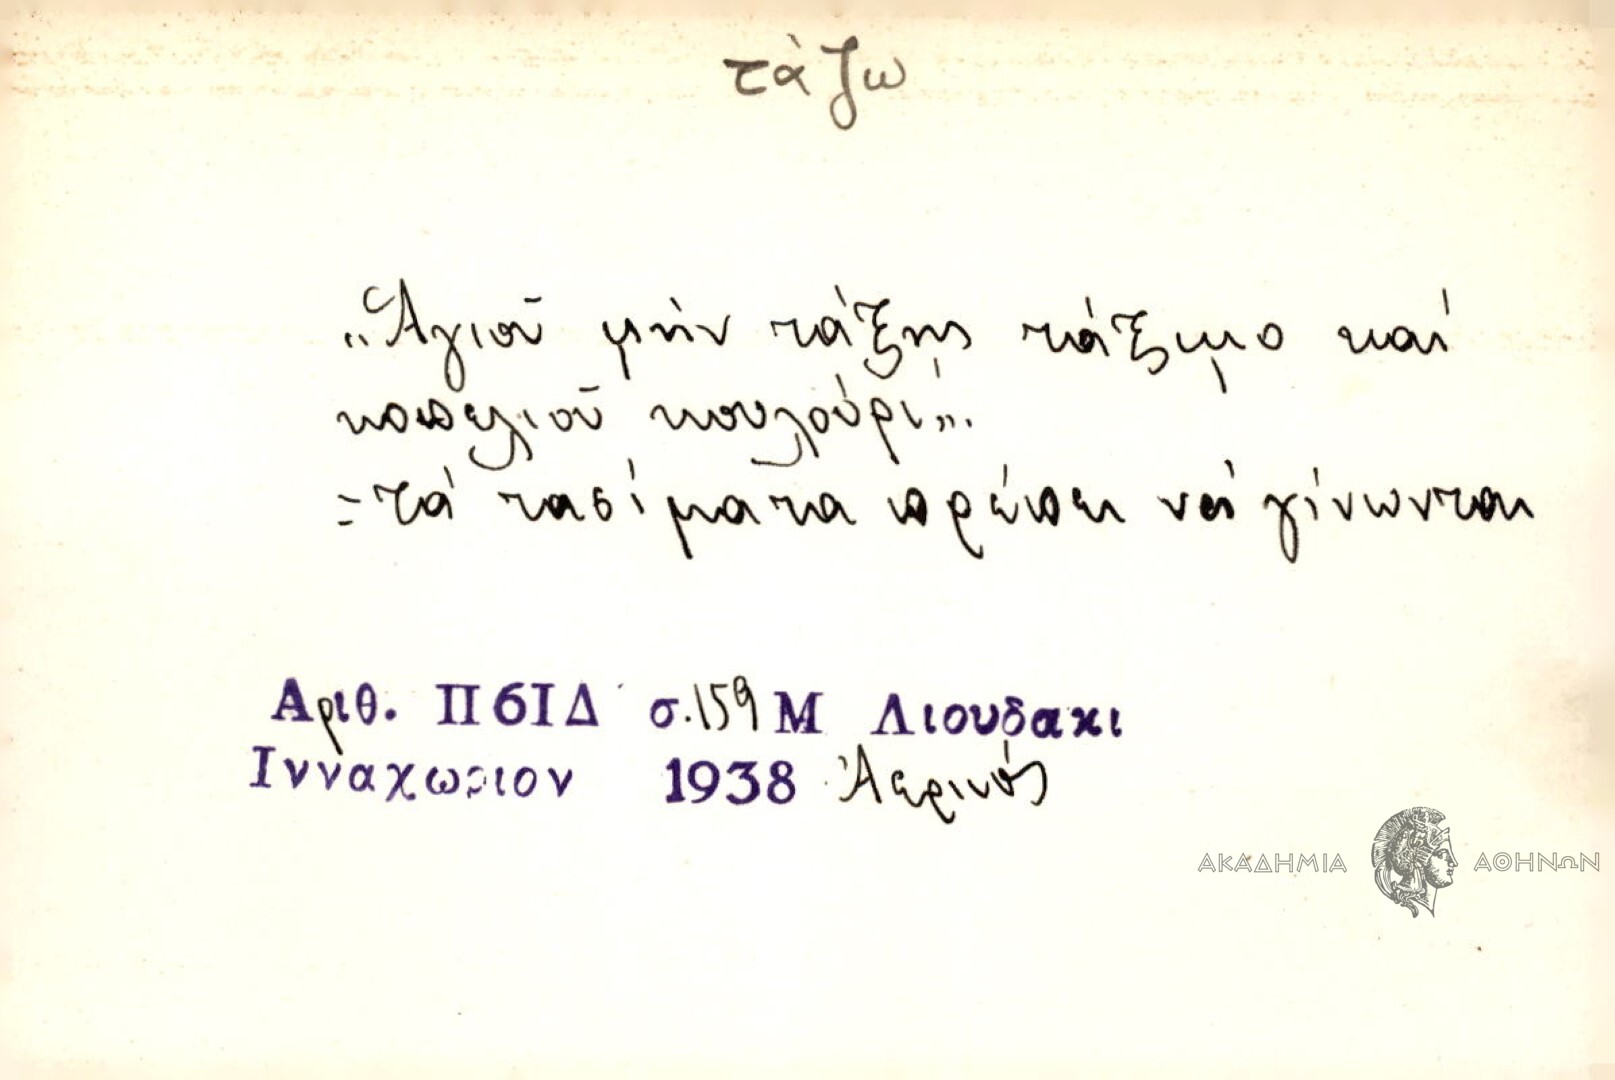 τάζω
„Ἁγιοῦ μήν τάξης τάξιμο καί
κοπελιοῦ κουλούρι".
= τά τασίματα πρέπει νά γίνωνται
Αριθ. Π6ΙΔ σ. 159 Μ Λιουδακι
Ινναχωριον 1938 Ἀερινός
ΑΚΑΔΗΜΙΑ ΑΘΗΝΩΝ